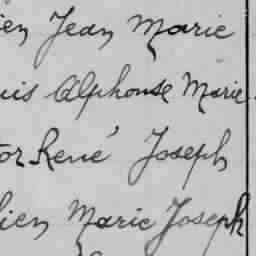 ien Jean Marie
uis Alphonse Marie
tor René Joseph
lien Marie Joseph